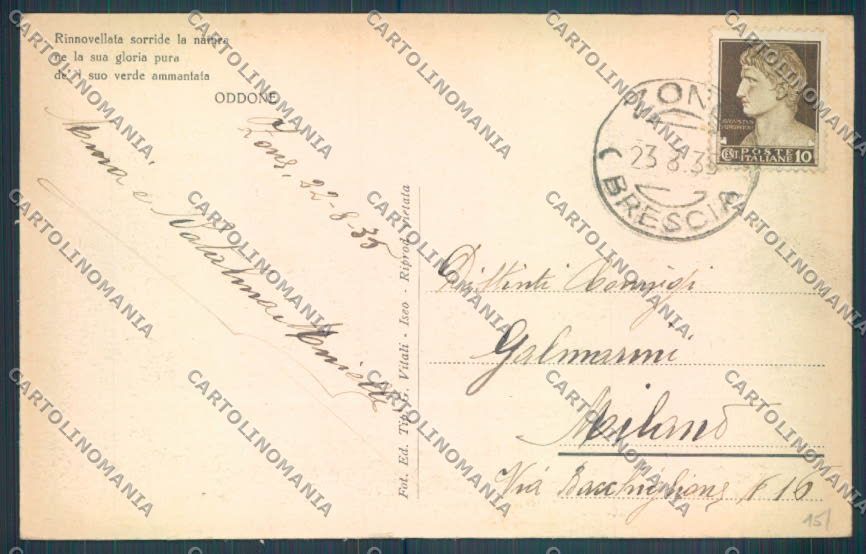 Rinnovellata sorride la natura
ne la sua gloria pura
del suo verde ammantata
ODDONE
Zone, 22-8-35
Anna e Natalina
Fot. Ed. Tip. G. Vitali - Iseo - Riprod. vietata
ZONE
23.8.35
(BRESCIA)
POSTE
CENT ITALIANE 10
Distinti Coniugi
Galmarini
Milano
Via Bacchiglione, N 16
15/
CARTOLINOMANIA